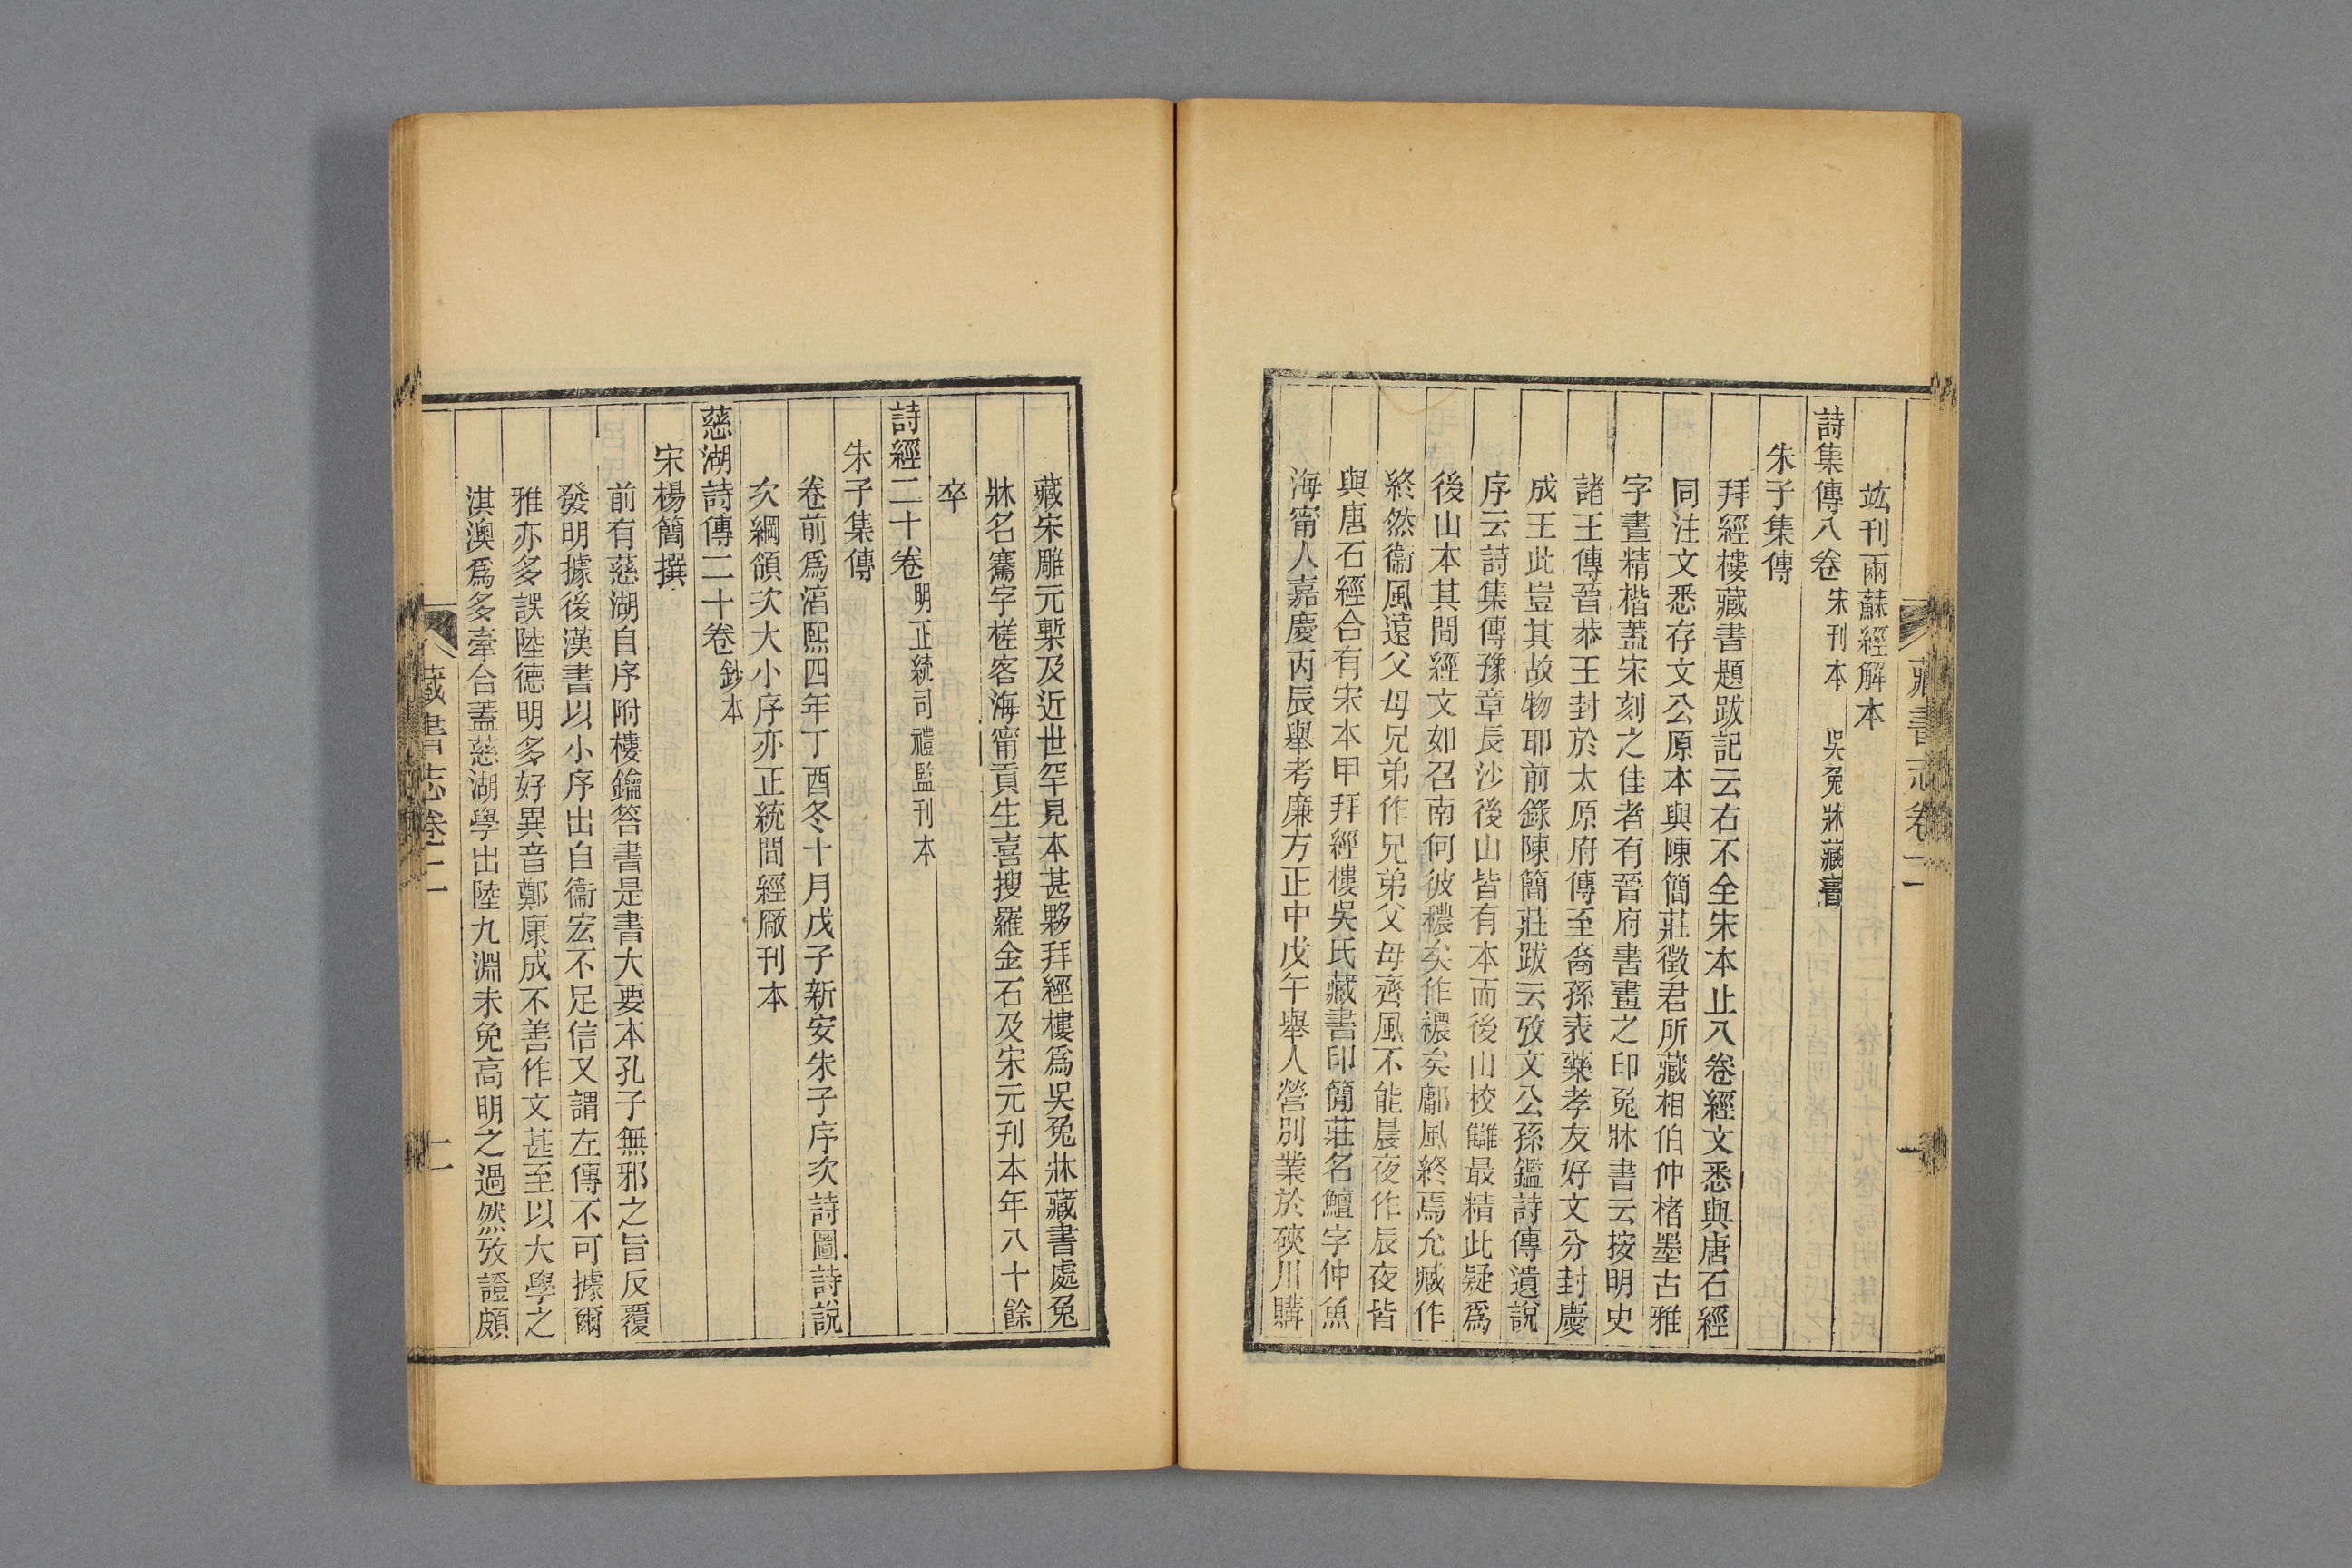 藏書志卷二
竝刊兩蘇經解本
詩集傳八卷 宋刊本 吳兔牀藏書
朱子集傳
拜經樓藏書題跋記云右不全宋本止八卷經文悉與唐石經
同注文悉存文公原本與陳簡莊徵君所藏相伯仲楮墨古雅
字畫精楷蓋宋刻之佳者有晉府書畫之印兔牀書云按明史
諸王傳晉恭王封於太原府傳至裔孫表𣜩孝友好文分封慶
成王此豈其故物耶前錄陳簡莊跋云攷文公孫鑑詩傳遺說
序云詩集傳豫章長沙後山皆有本而後山校讎最精此疑爲
後山本其間經文如召南何彼穠矣作襛矣鄘風終焉允臧作
終然衞風遠父母兄弟作兄弟父母齊風不能晨夜作辰夜皆
與唐石經合有宋本甲拜經樓吳氏藏書印簡莊名鱣字仲魚
海甯人嘉慶丙辰舉考廉方正中戊午舉人營別業於硤川購
藏宋雕元槧及近世罕見本甚夥拜經樓爲吳兔牀藏書處兔
牀名騫字槎客海甯貢生喜搜羅金石及宋元刊本年八十餘
卒
詩經二十卷 明正統司禮監刊本
朱子集傳
卷前爲湻熙四年丁酉冬十月戊子新安朱子序次詩圖詩說
次綱領次大小序亦正統間經厰刊本
慈湖詩傳二十卷 鈔本
宋楊簡撰
前有慈湖自序附樓鑰答書是書大要本孔子無邪之旨反覆
發明據後漢書以小序出自衞宏不足信又謂左傳不可據爾
雅亦多誤陸德明多好異音鄭康成不善作文甚至以大學之
淇澳爲多牽合蓋慈湖學出陸九淵未免高明之過然攷證頗
藏書志卷二